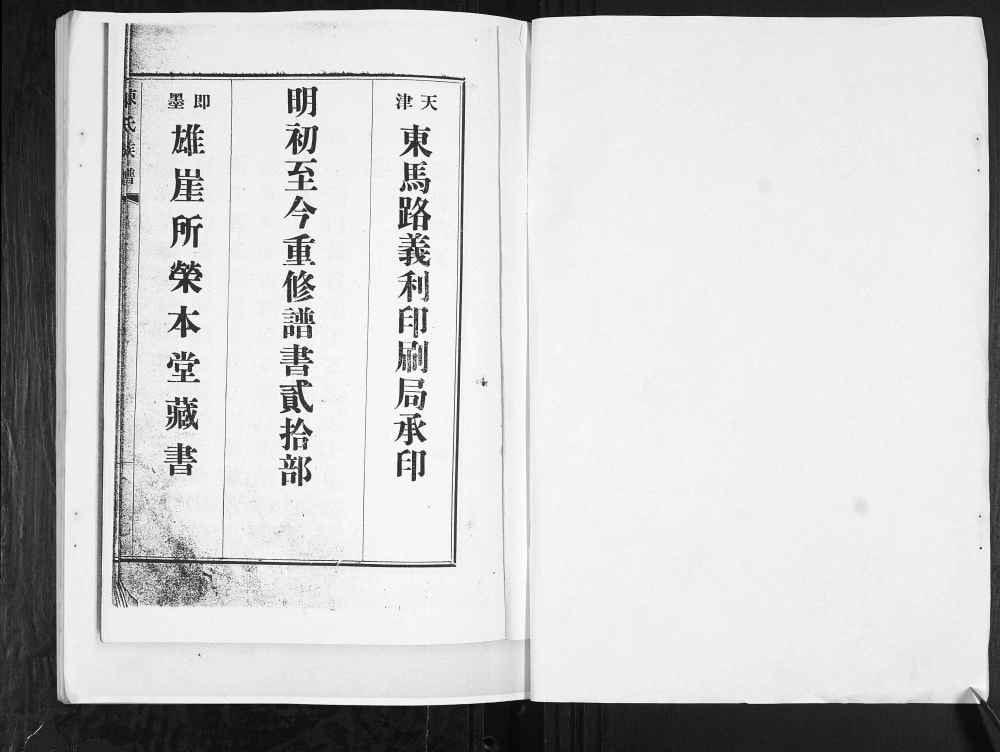 天津
東馬路義利印刷局承印
明初至今重修譜書貳拾部
即墨
雄崖所榮本堂藏書
陳氏族譜